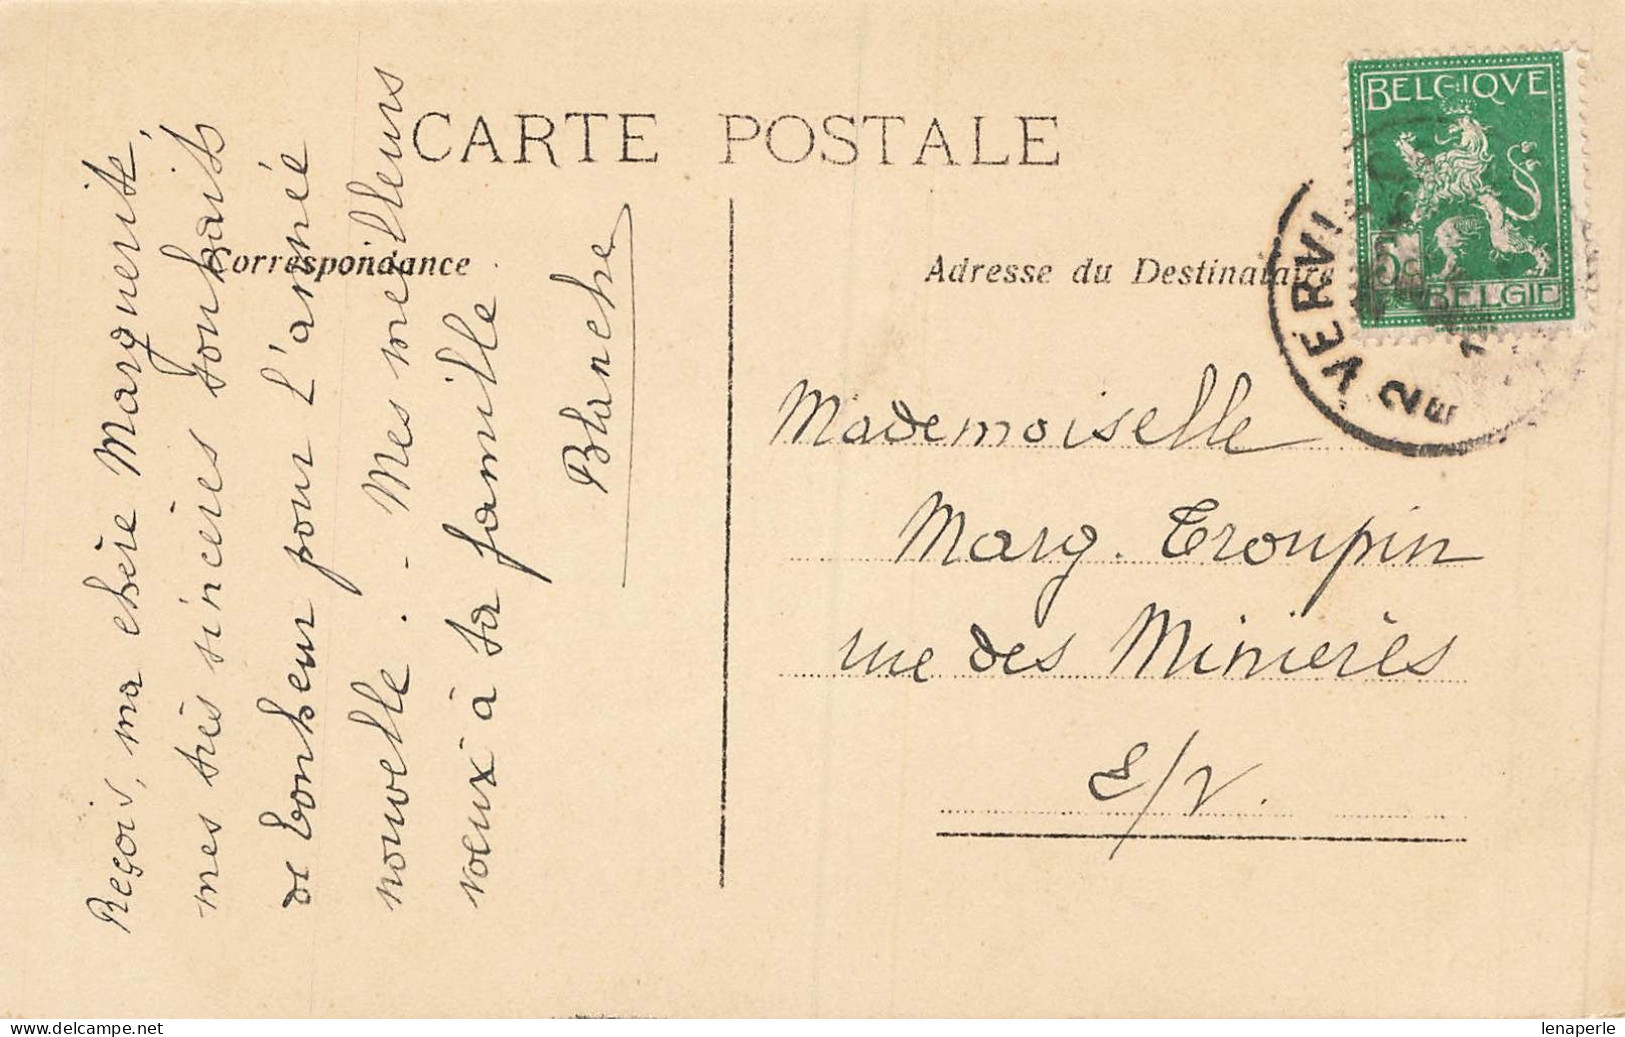 CARTE POSTALE
Correspondance
Adresse du Destinataire
BELGIQVE
5
BELGIE
VERVI
2E
Reçois, ma chère Marguerite,
mes très sincères souhaits
de bonheur pour l'année
nouvelle. - Mes meilleurs
voeux à ta famille
Blanche
Mademoiselle
Marg. Troupin
rue des Minières
E/V.
www.delcampe.net
lenaperle